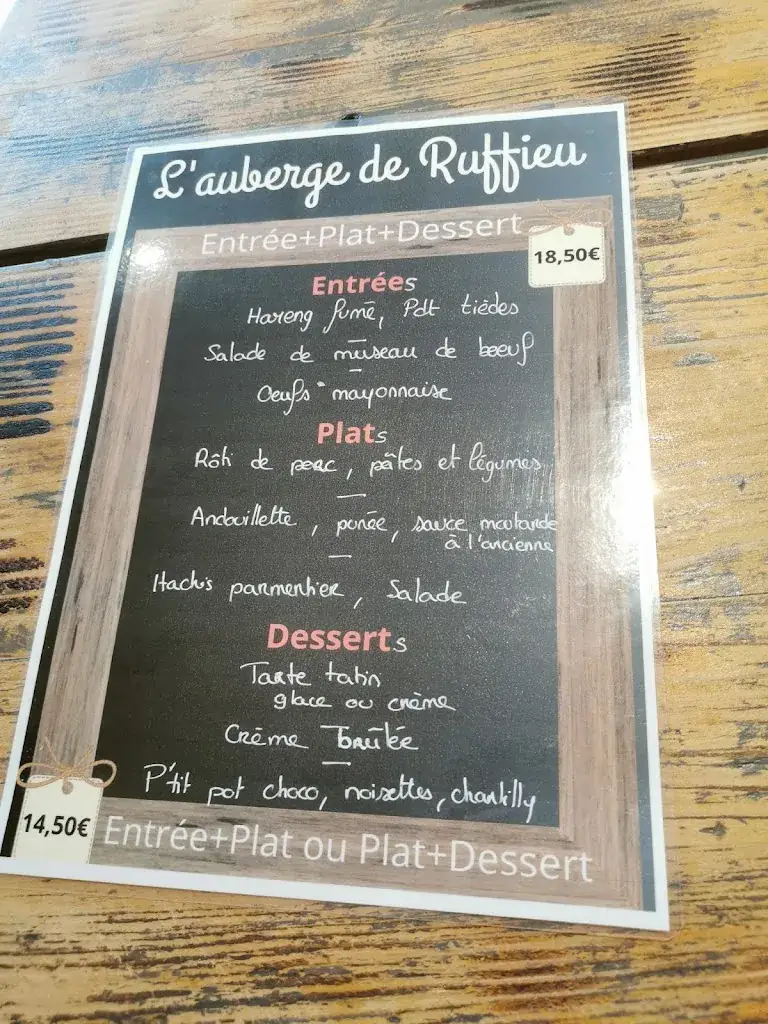 L'auberge de Ruffieu
Entrée+Plat+Dessert
18,50€
Entrées
Hareng fumé, Pdt tièdes
Salade de museau de boeuf
Oeufs mayonnaise
Plats
Rôti de porc, pâtes et légumes
Andouillette, purée, sauce moutarde
à l'ancienne
Hachis parmentier, Salade
Desserts
Tarte tatin
glace ou crème
Crème brûlée
P'tit pot choco, noisettes, chantilly
14,50€
Entrée+Plat ou Plat+Dessert